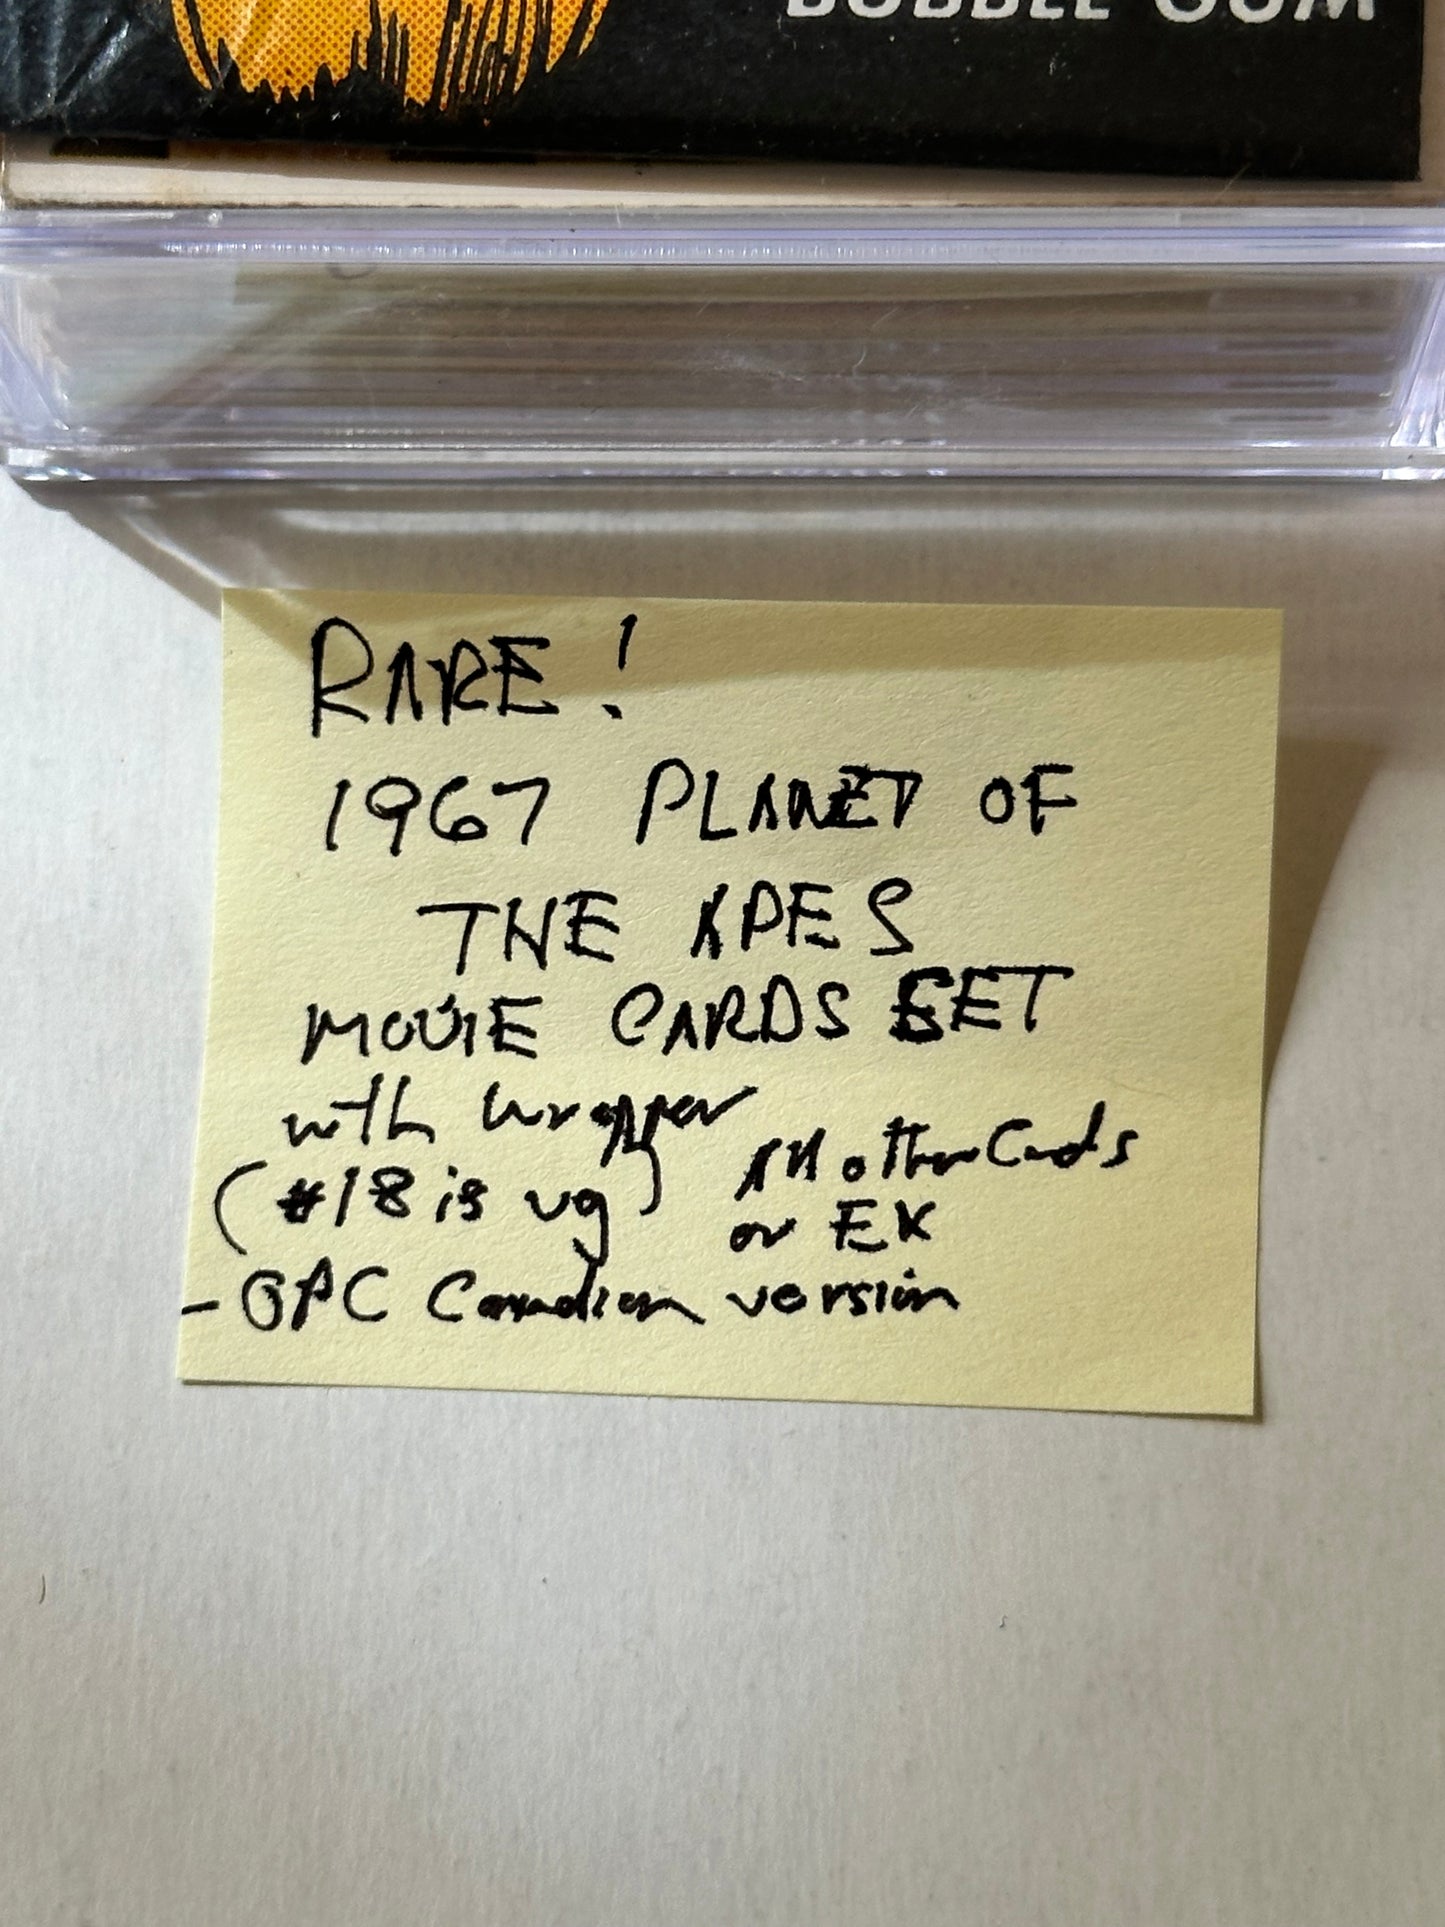 BUBBLE GUM
RARE!
1967 PLANET OF
THE APES
MOVIE CARDS SET
with wrapper
(#18 is vg) All other Cards
or EX
- OPC Canadian version